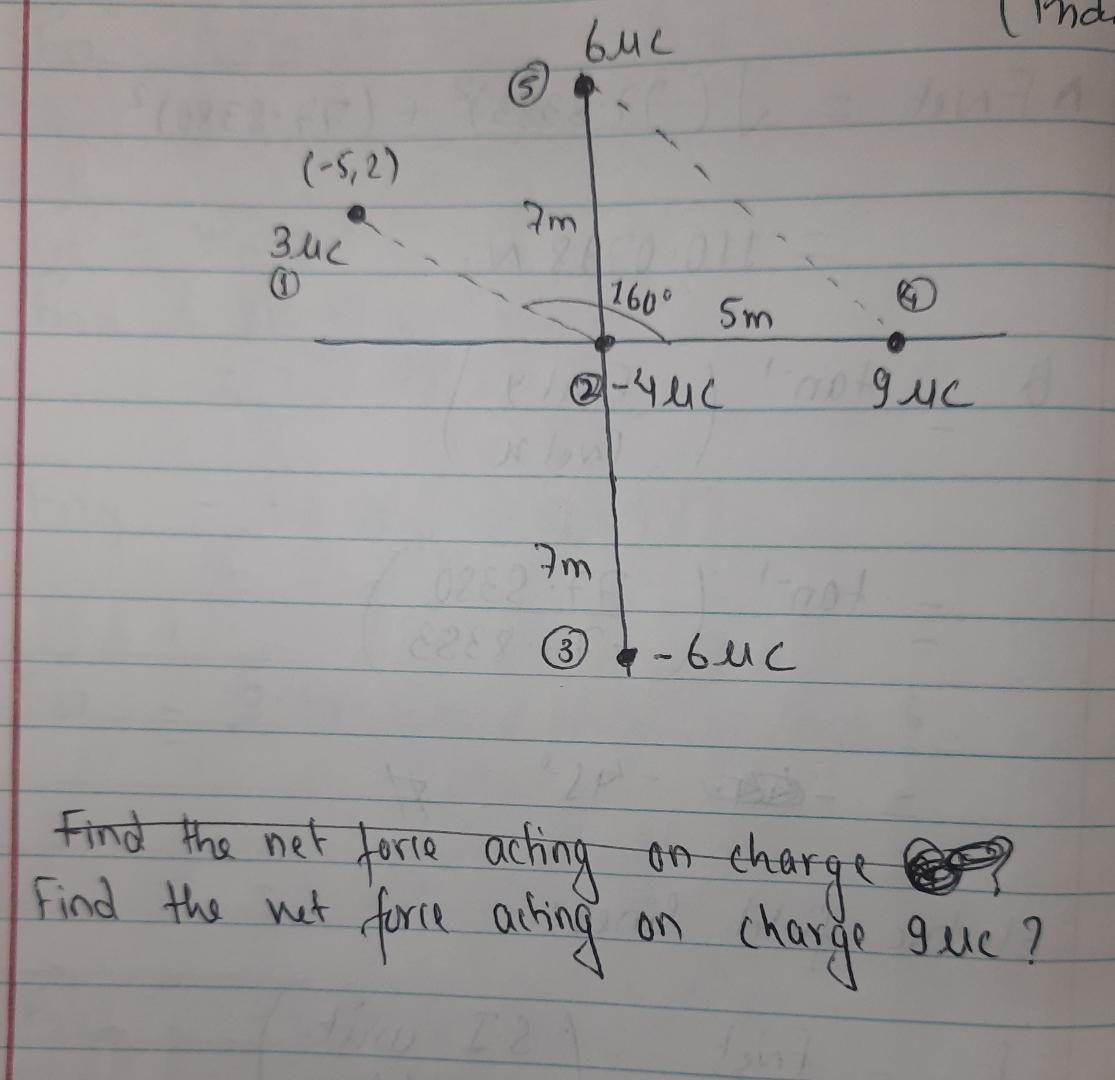 (Ind
6μc
⑤
(-5,2)
7m
3μc
①
160°
5m
④
②
-4μc
9μc
7m
③
-6μc
Find the net force acting on charge ?
Find the net force acting on charge 9μc ?